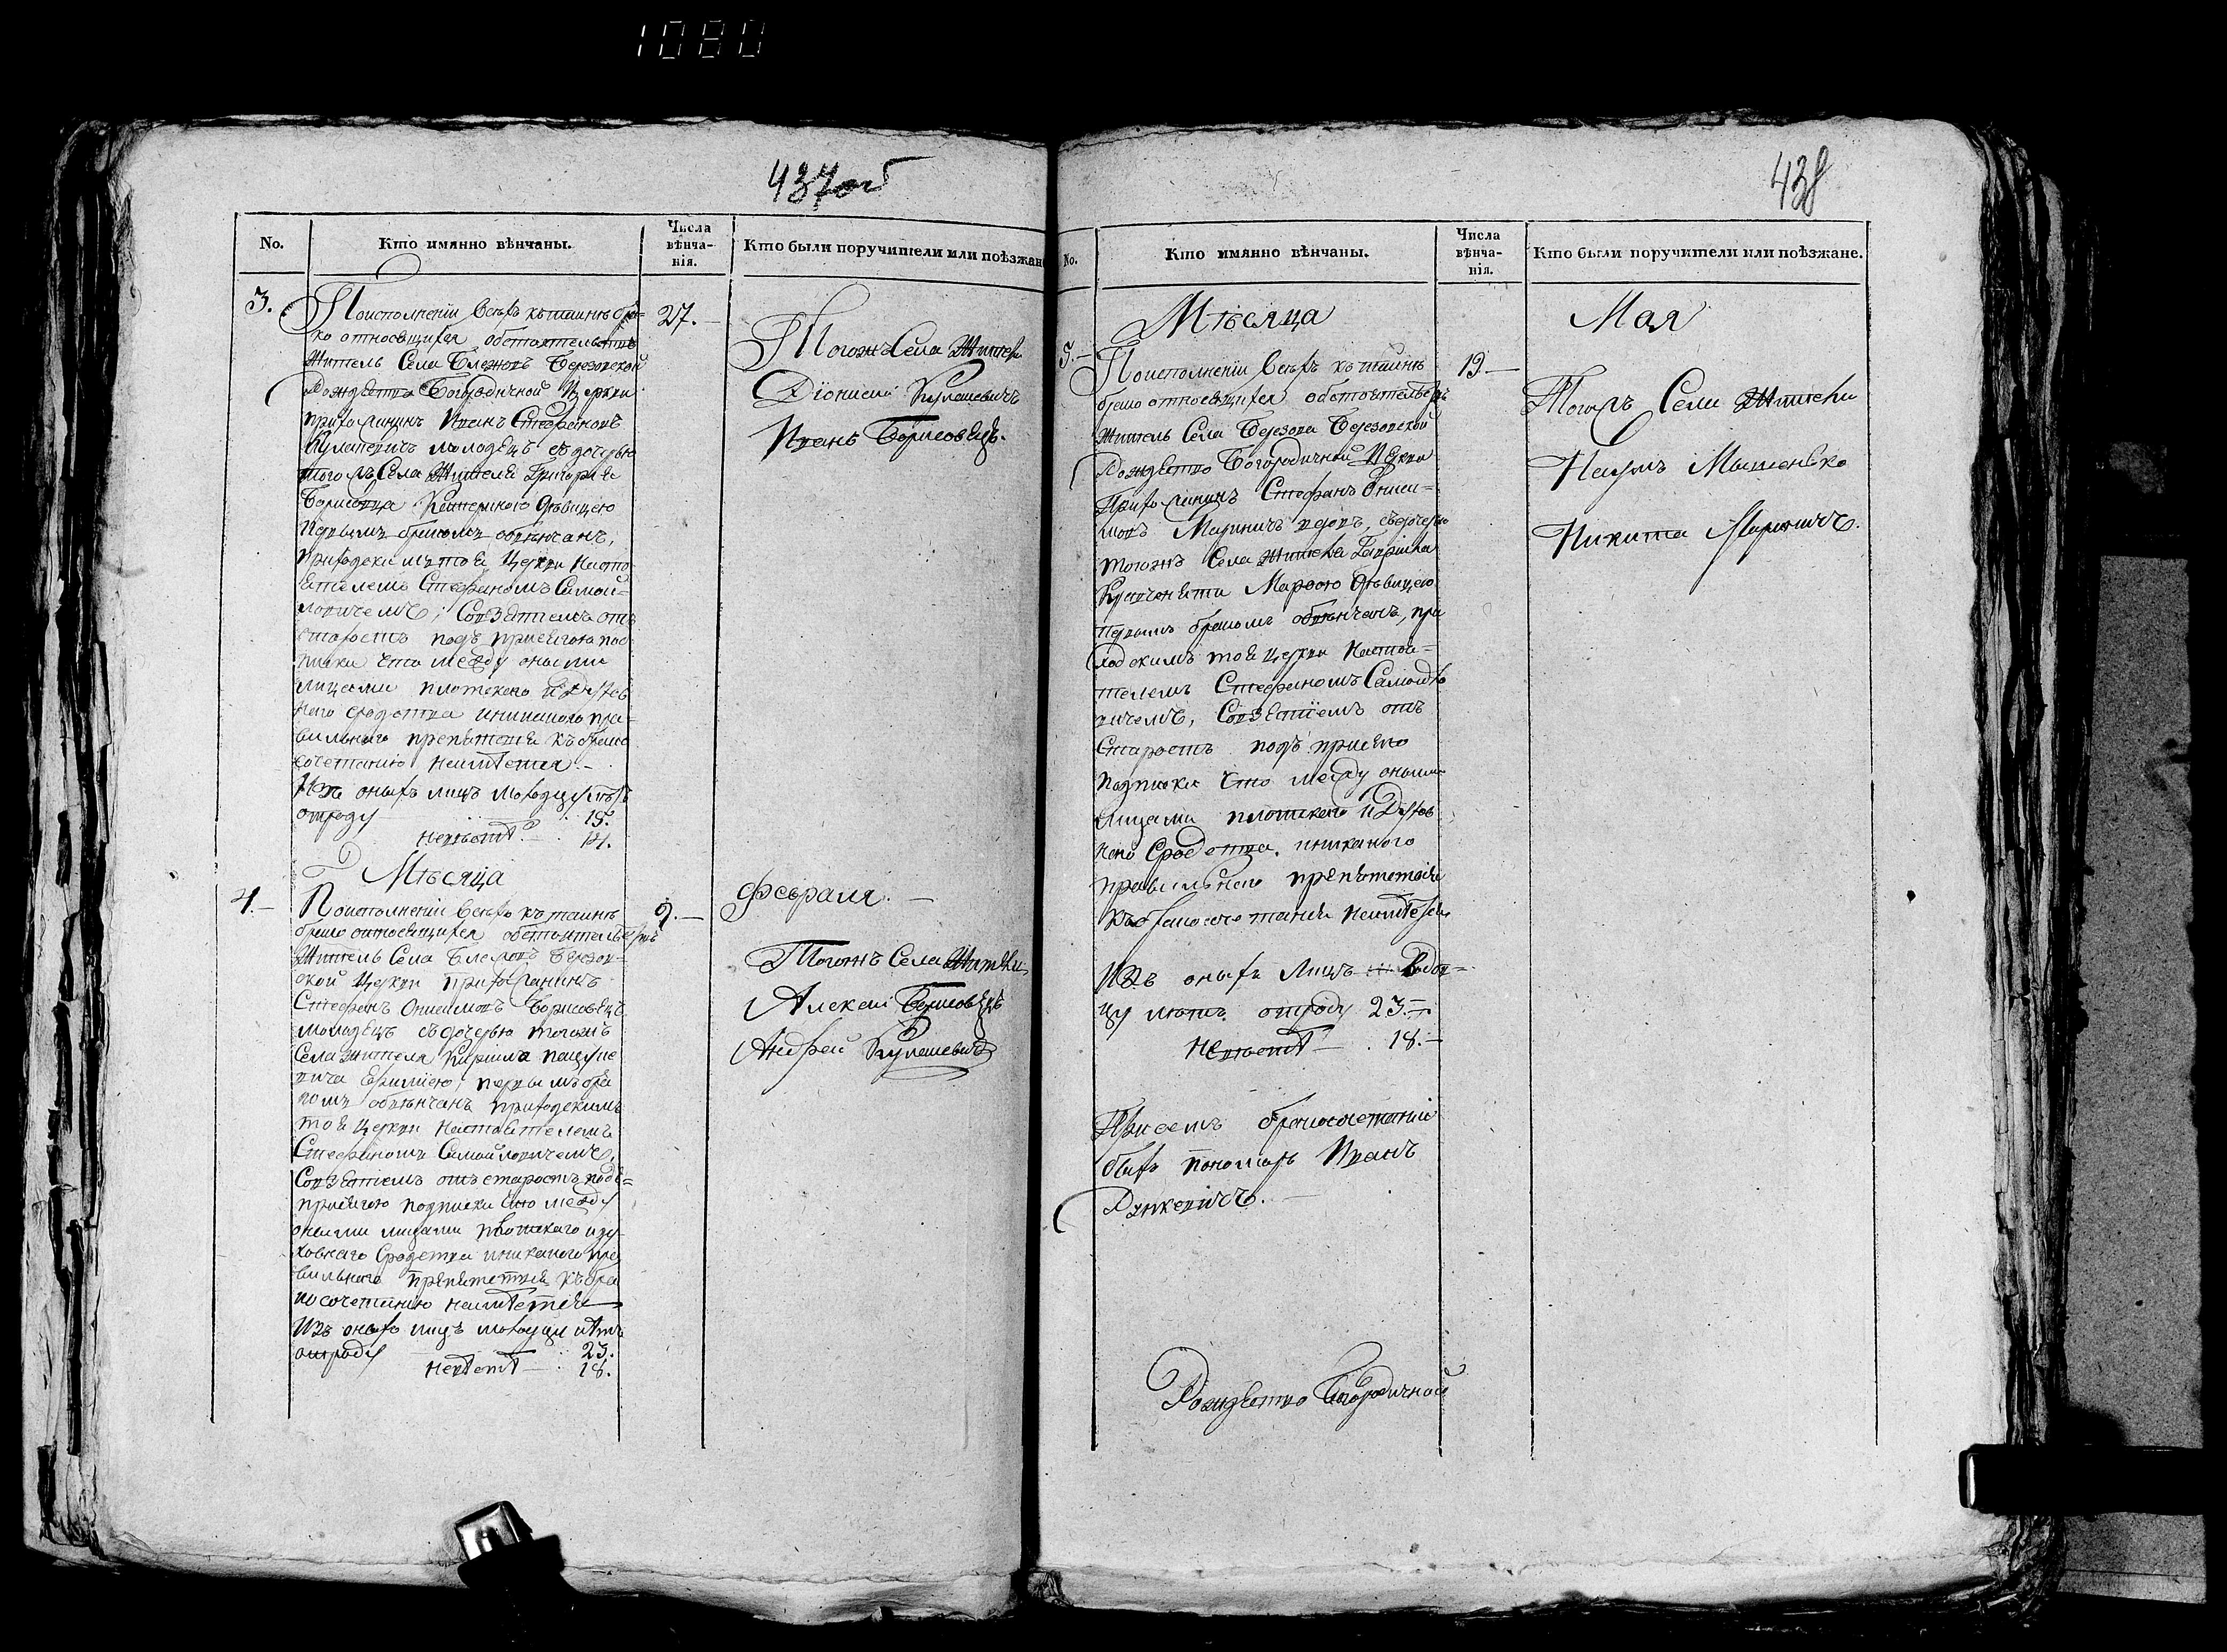 1080
437об
No.
Кто имянно вѣнчаны.
Числа
вѣнча-
нія.
Кто были поручители или поѣзжан
3.
Поисполненіи всѣхъ къ таинъ бра-
ко относящихся обстоятельствъ
Житель Села Блежовъ Березовской
Рождество Богородичной Церкви
прихожанинъ Иванъ Стефановъ
Кулашевичъ молодецъ съ дочерью
тогожъ Села Жителя Григорія
Борисовца Катериною дѣвицею
первымъ бракомъ обвѣнчанъ,
приходскимъ тоя Церкви Насто
ятелемъ Стефаномъ Самой-
ловичемъ; Совзятіемъ отъ
старостъ подъ присягою под
писки что между оными
лицами плотского и духов
наго сродства иникакого пра-
вильнаго препятствія къ брако
сочетанію неимѣется.
Изъ оныхъ лицъ молодцу лѣтъ
отроду 19.
невѣстѣ 14.
27.
Тогожъ Села Жители
Діонисій Кулашевичъ
Иванъ Борисовецъ.
Мѣсяца
Февраля.
4.
Поисполненіи всѣхъ къ таинъ
брако относящихся обстоятельствъ
Житель Села Блежовъ Березов-
ской Церкви прихожанинъ
Стефанъ Онисимовъ Борисовецъ
молодецъ съ дочерью тогожъ
Села жителя Кирила
первымъ бра
комъ обвѣнчанъ приходскимъ
тоя Церкви Настоятелемъ
Стефаномъ Самойловичемъ,
Совзятіемъ отъ старостъ подъ-
присягою подписки что между
оными лицами плотскаго иду-
ховнаго сродства иникакого пра
вильнаго препятствія къ бра
косочетанію неимѣется
Изъ оныхъ лицъ молодцу лѣтъ
отроду 23.
невѣстѣ 18.
9.
Тогожъ Села Жители
Алексей Борисовецъ
Андрей Кулашевичъ
438
No.
Кто имянно вѣнчаны.
Числа
вѣнча-
нія.
Кто были поручители или поѣзжане.
Мѣсяца
Мая
5.
Поисполненіи всѣхъ къ таинъ
брако относящихся обстоятельствъ
Житель Села Березова Березовской
Рождество Богородичной Церкви
Прихожанинъ Стефанъ Ониси-
мовъ Мариничъ вдовъ, съ дочерью
тогожъ Села Жителя Гавріила
Марфою дѣвицею
первымъ бракомъ обвѣнчанъ, при
ходскимъ тоя Церкви Настоя-
телемъ Стефаномъ Самойло
вичемъ, Совзятіемъ отъ
Старостъ подъ присягою
подписки что между оными
лицами плотскаго и Духов
наго Сродства, иникакого
правильнаго препятствія
къ бракосочетанію неимѣется
Изъ оныхъ лицъ вдов-
цу лѣтъ отроду 23.
невѣстѣ 18.
19.
Тогожъ Села Жители
Наумъ Мышенько
Никита Мариничъ.
При семъ бракосочетаніи
былъ пономарь Иванъ
Рункевичъ.
Рождество Богородичной